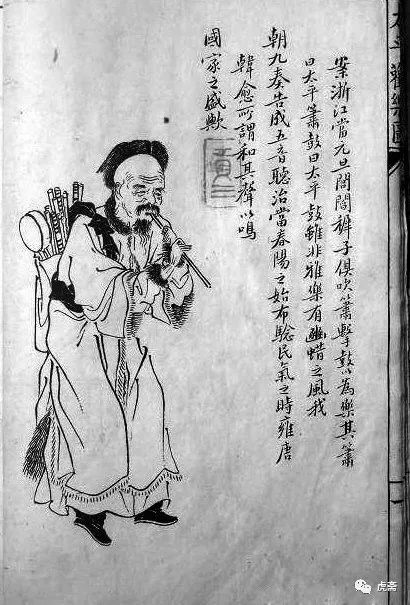 太平歡樂圖
案浙江當元旦閭閻穉子俱吹簫擊鼓以為樂其簫
曰太平簫鼓曰太平鼓雖非雅樂有豳蜡之風我
朝九奏告成五音聽治當春陽之始布騐民氣之時雍唐
韓愈所謂和其聲以鳴
國家之盛歟
虎斋